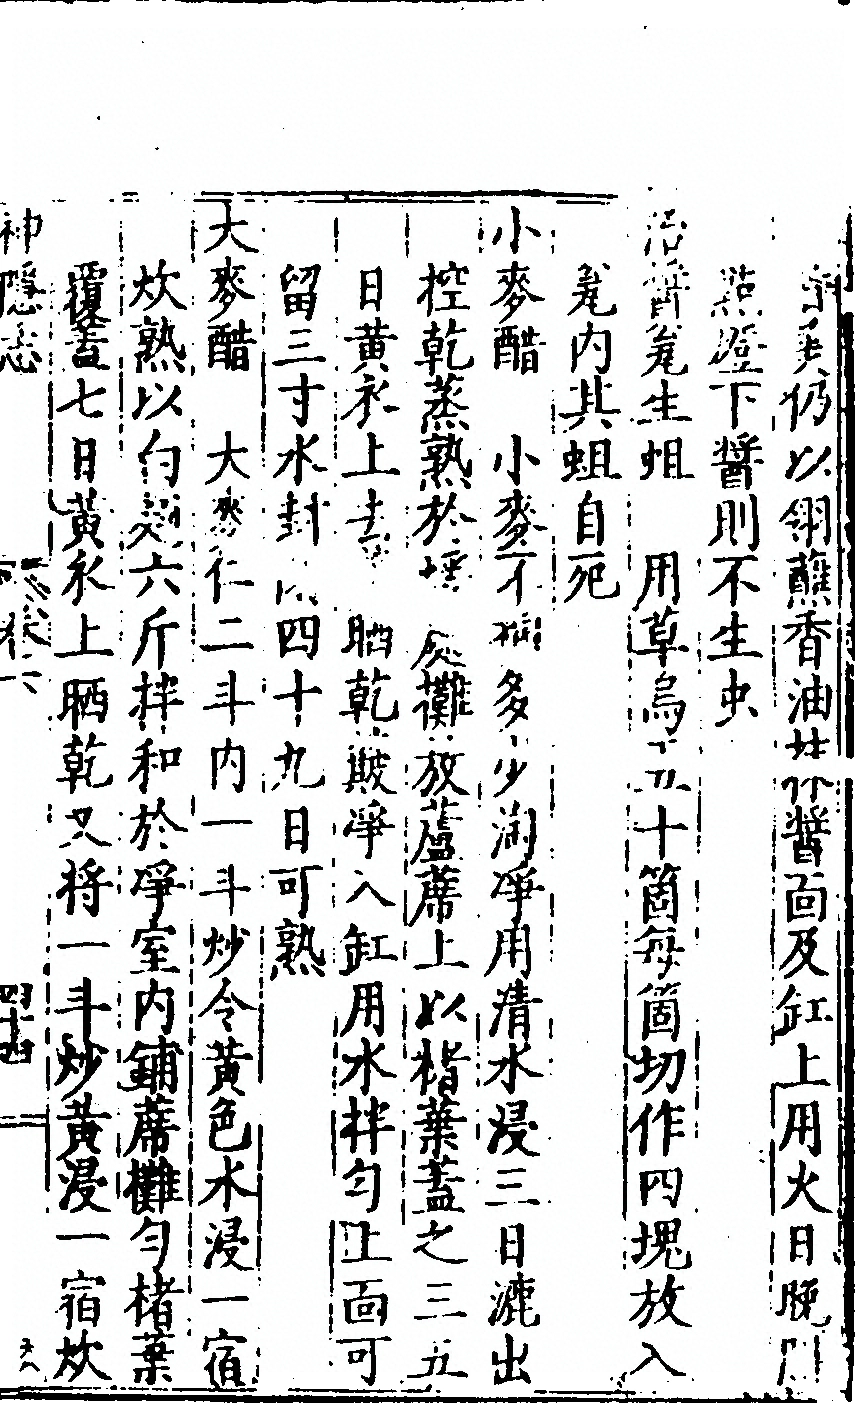 仍以翎蘸香油抹醬面及缸上用火日晚
點燈下醬則不生虫
治醬瓮生蛆 用草烏五十箇每箇切作四塊放入
瓮内其蛆自死
小麥醋 小麥不拘多少淘凈用清水浸三日漉出
控乾蒸熟於處攤放蘆蓆上以楮葉蓋之三五
日黄衣上去晒乾簸凈入缸用水拌匀上面可
留三寸水封四十九日可熟
大麥醋 大麥仁二斗内一斗炒令黄色水浸一宿
炊熟以白麪六斤拌和於凈室内鋪蓆攤匀楮葉
覆蓋七日黄衣上晒乾又將一斗炒黄浸一宿炊
神隱志 卷 四十四